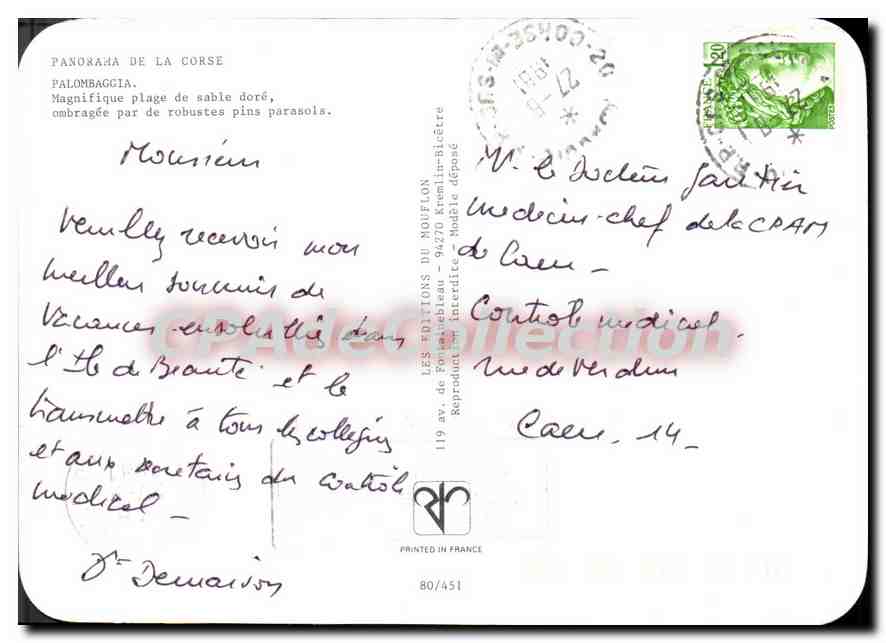 PANORAMA DE LA CORSE
PALOMBAGGIA.
Magnifique plage de sable doré,
ombragée par de robustes pins parasols.
Monsieur
Veuillez recevoir mon
meilleur souvenir de
vacances ensoleillées dans
l'Ile de Beauté et le
transmettre à tous les collègues
et aux secrétaires du contrôle
médical -
Dr Demaison
LES EDITIONS DU MOUFLON
119 av. de Fontainebleau - 94270 Kremlin-Bicêtre
Reproduction interdite - Modèle déposé
PRINTED IN FRANCE
80/451
27-6
1981
1,20
FRANCE
POSTES
Mr. le Docteur Gautier
medecin-chef de la CPAM
de Caen -
Contrôle médical.
rue de Verdun
Caen. 14 -
CPAdeCollection